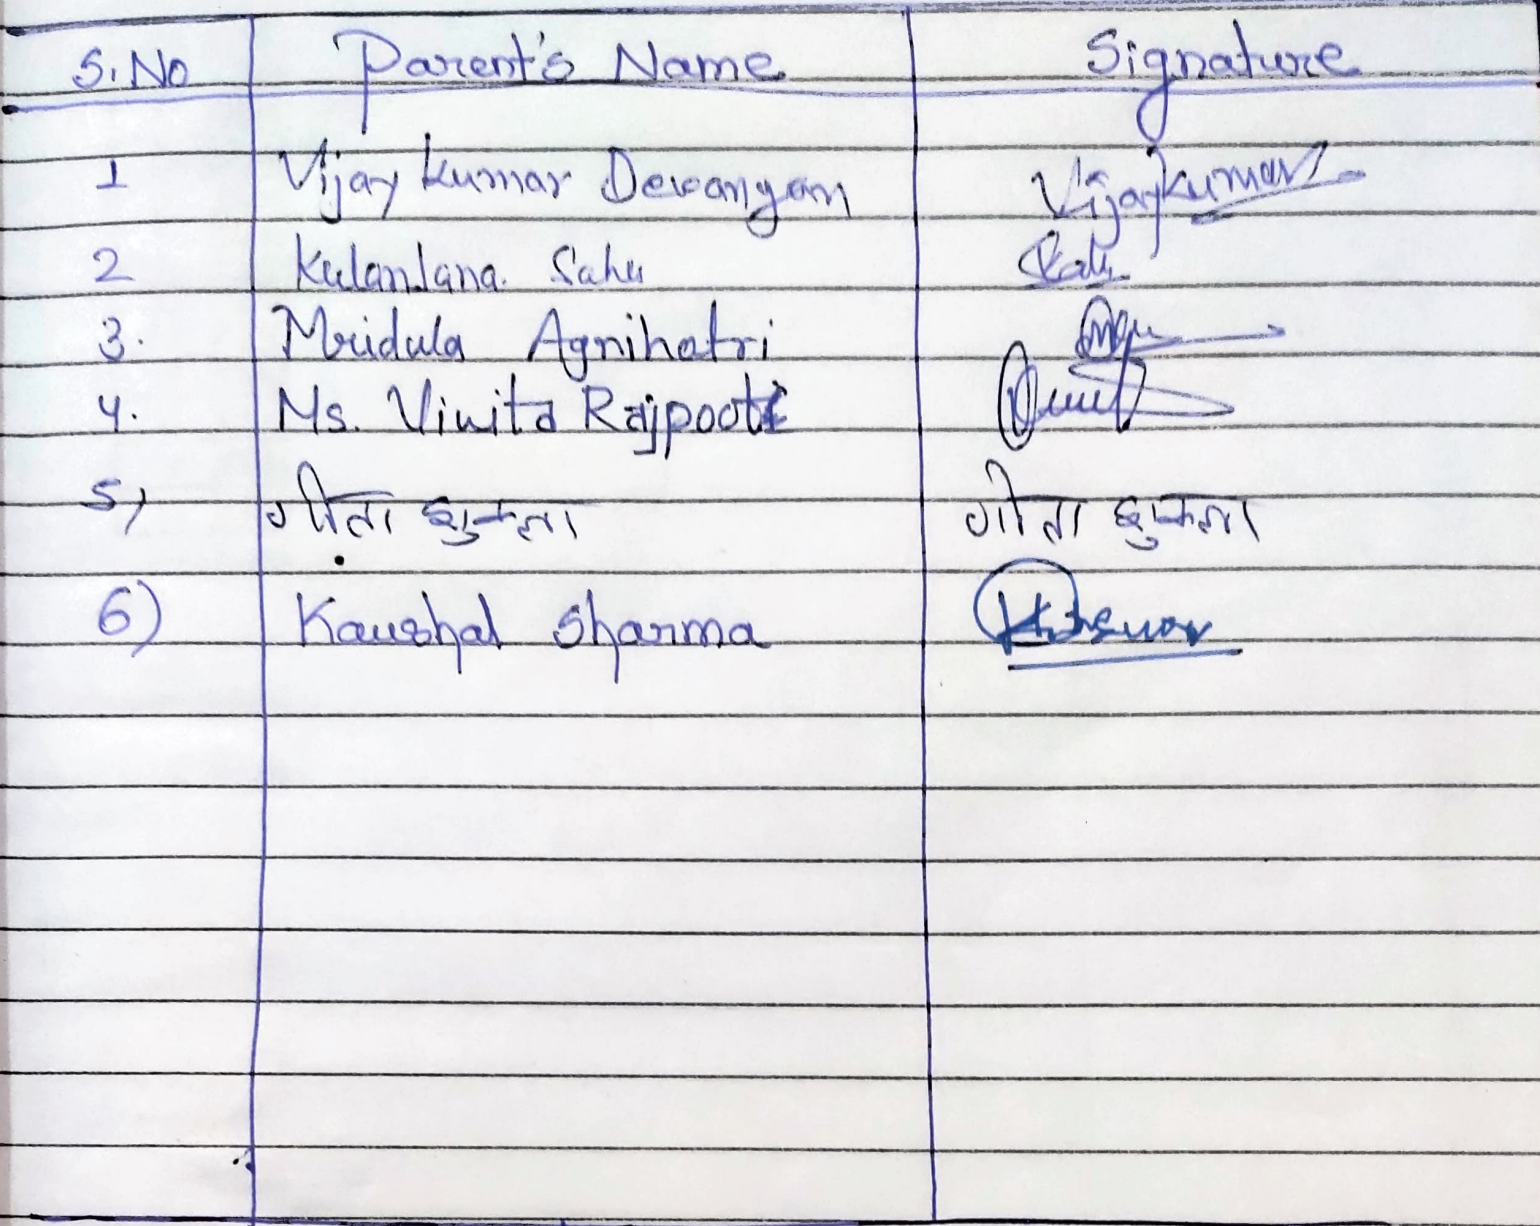 S.No Parent's Name Signature
1 Vijay Kumar Devangan Vijaykumar
2 Sahu
3. Mridula Agnihotri
4. Ms. Vinita Rajpoot
5) गीता शुक्ला गीता शुक्ला
6) Kaushal Sharma